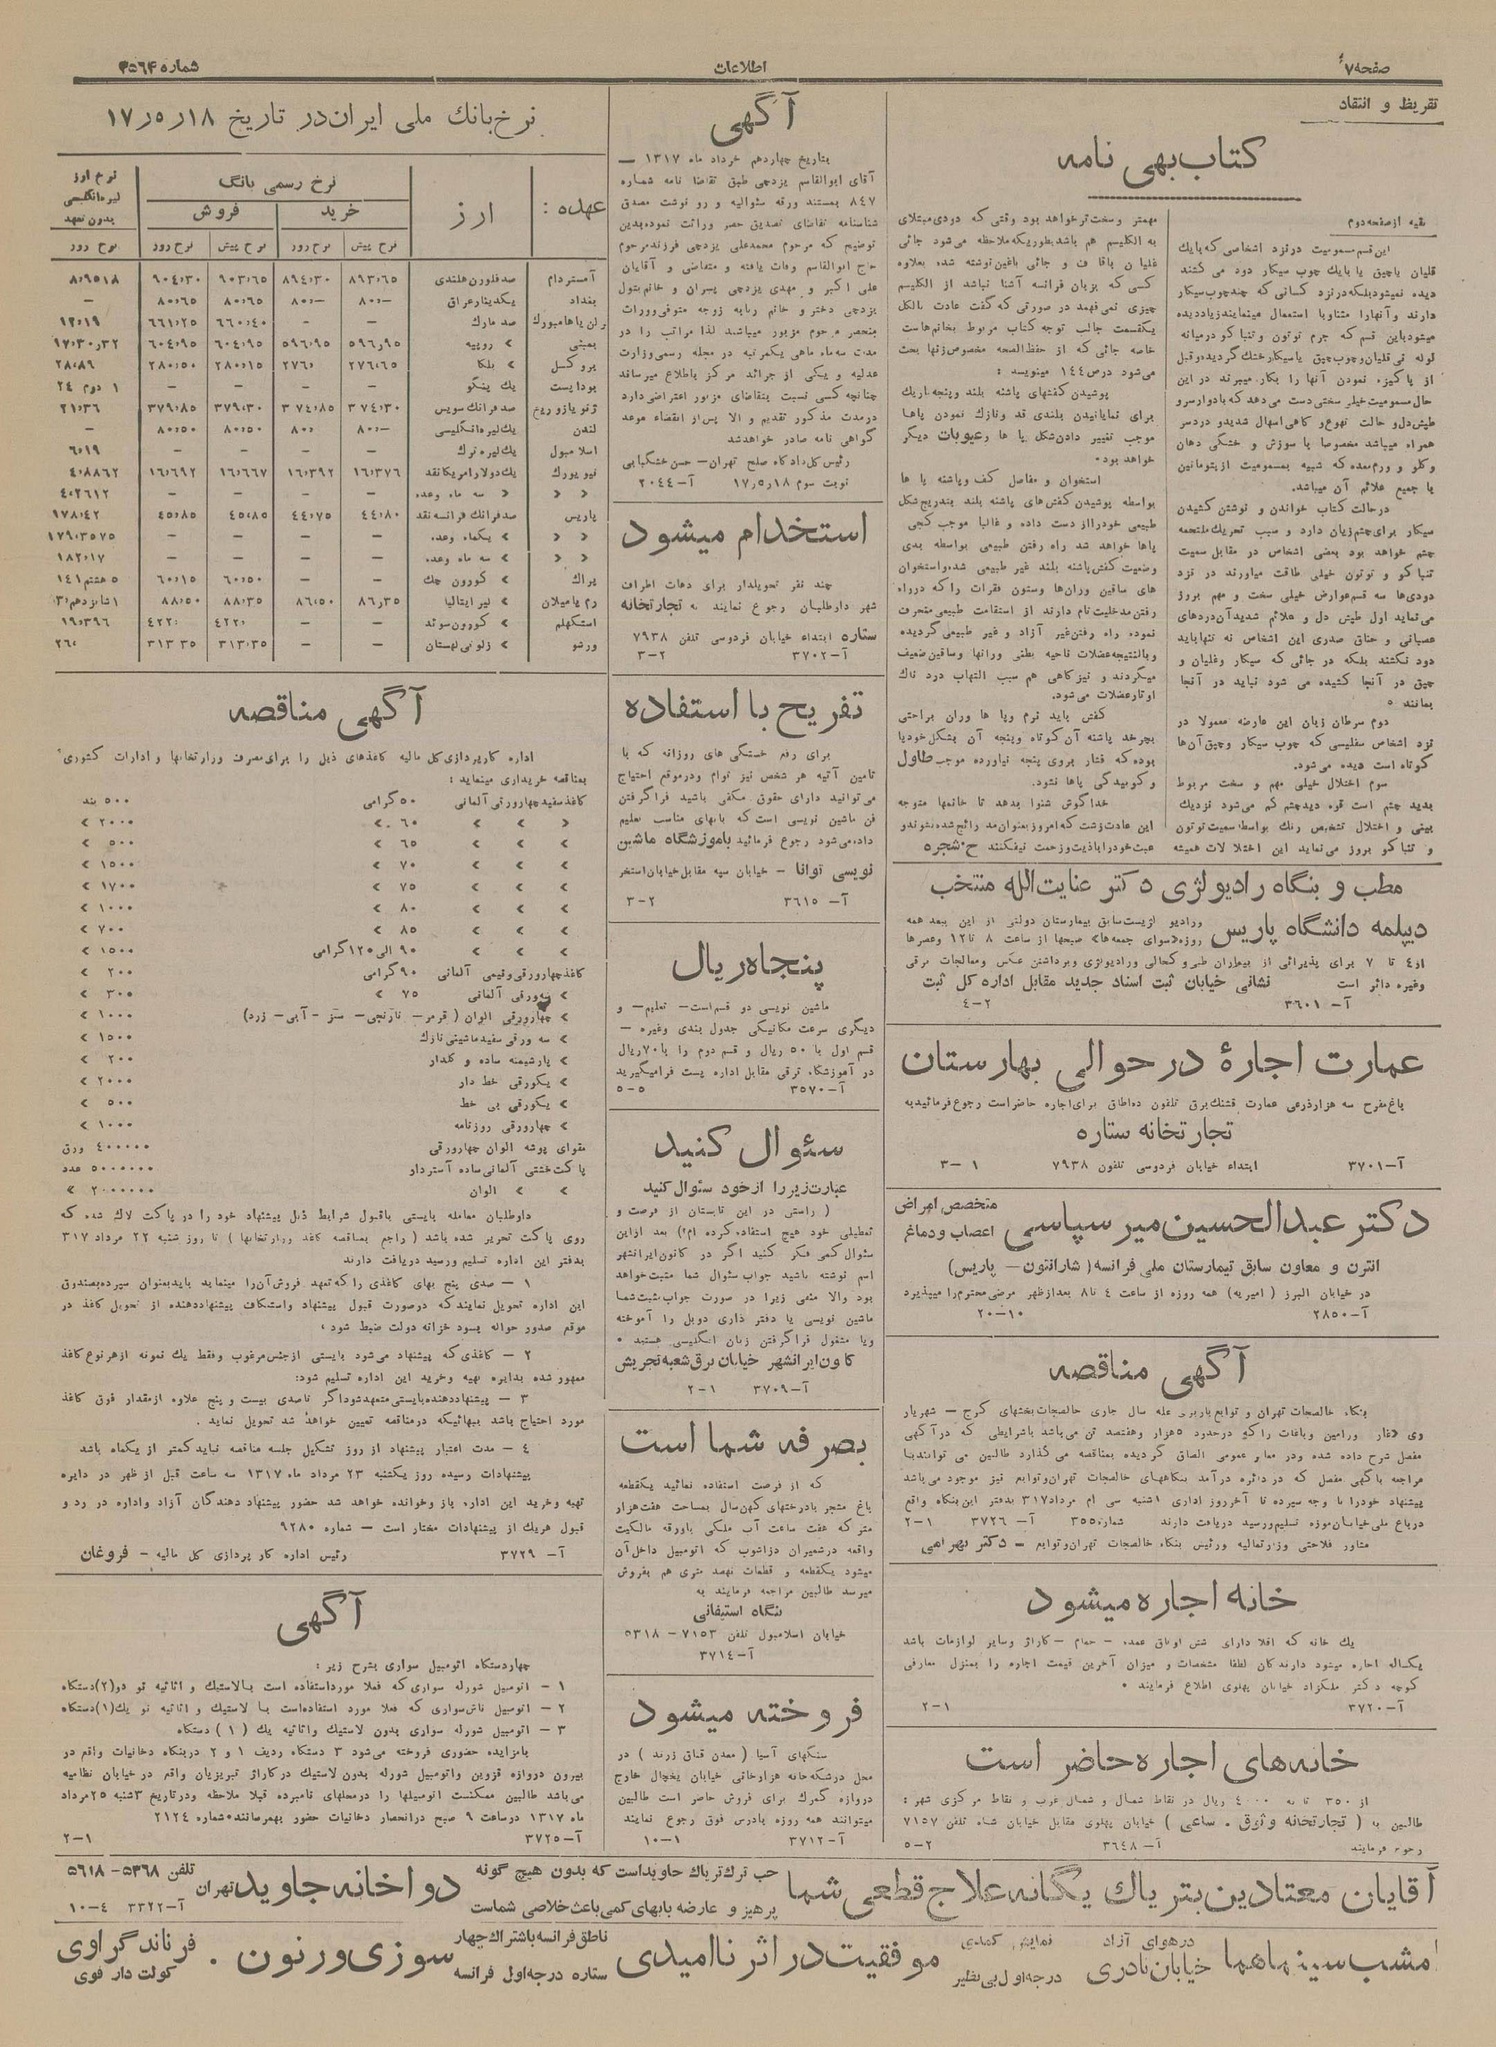 صفحه ۷
اطلاعات
شماره ۳۵۶۴
تقریظ و انتقاد
کتاب بهی نامه
بقیه از صفحه دوم
این قسم مسمومیت در نزد اشخاصی که بایك
قلیان یا چپق یا بایك چوب سیگار دود می کنند
دیده نمیشود بلکه در نزد کسانی که چند چوب سیگار
دارند و آنها را متناوبا استعمال مینمایند زیاد دیده
میشود باین قسم که جرم توتون و تنباکو در میانه
لوله نی قلیان و چوب چپق یا سیگار خشك گردیده و قبل
از پاکیزه نمودن آنها را بکار میبرند در این
حال مسمومیت خیلی سختی دست می دهد که بادوار سر و
طپش دل و حالت تهوع و گاهی اسهال شدید و دردسر
همراه میباشد مخصوصا با سوزش و خشکی دهان
و گلو و ورم معده که شبیه بمسمومیت از بتومائین
با جمیع علائم آن میباشد.
در حالت کتاب خواندن و نوشتن کشیدن
سیگار برای چشم زیان دارد و سبب تحریك ملتحمه
چشم خواهد بود بعضی اشخاص در مقابل سمیت
تنباکو و توتون خیلی طاقت میاورند در نزد
دودی ها سه قسم عوارض خیلی سخت و مهم بروز
می نماید اول طپش دل و علائم شدید آن دردهای
عصبانی و خناق صدری این اشخاص نه تنها باید
دود نکشند بلکه در جائی که سیگار و غلیان و
چپق در آنجا کشیده می شود نباید در آنجا
بمانند
دوم سرطان زبان این عارضه معمولا در
نزد اشخاص سفلیسی که چوب سیگار و چپق آن ها
کوتاه است دیده می شود.
سوم اختلال خیلی مهم و سخت مربوط
بدید چشم است قوه دید چشم کم می شود نزدیك
بینی و اختلال تشخیص رنك بواسطه سمیت توتون
و تنباکو بروز می نماید این اختلالات همیشه
مهمتر و سخت تر خواهد بود وقتی که دودی مبتلای
به الکلیسم هم باشد بطوریکه ملاحظه می شود جائی
غلیان باقاف و جائی باغین نوشته شده بعلاوه
کسی که بزبان فرانسه آشنا نباشد از الکلیسم
چیزی نمی فهمد در صورتی که گفت عادت بالکل
یکقسمت جالب توجه کتاب مربوط بخانم هاست
خاصه جائی که از حفظ الصحه مخصوص زنها بحث
می شود در ص ۱۴۴ مینویسد :
پوشیدن کفشهای پاشنه بلند و پنجه باریك
برای نمایانیدن بلندی قد و نازك نمودن پاها
موجب تغییر دادن شکل پا ها و عیوبات دیگر
خواهد بود.
استخوان و مفاصل کف و پاشنه پا ها
بواسطه پوشیدن کفش های پاشنه بلند بتدریج شکل
طبیعی خود را از دست داده و غالبا موجب کجی
پاها خواهد شد راه رفتن طبیعی بواسطه بدی
وضعیت کفش پاشنه بلند غیر طبیعی شده و استخوان
های ساقین و ران ها و ستون فقرات را که در راه
رفتن مدخلیت تام دارند از استقامت طبیعی منحرف
نموده راه رفتن غیر آزاد و غیر طبیعی گردیده
و بالنتیجه عضلات ناحیه بطنی و رانها و ساقین ضعیف
میگردند و نیز گاهی هم سبب التهاب درد ناك
اوتار عضلات می شود.
کفش باید نرم و پا ها در آن براحتی
بچرخد پاشنه آن کوتاه و پنجه آن بشکل خود پا
بوده که فشار بروی پنجه نیاورده موجب طاول
و کوبیدگی پاها نشود.
خدا گوش شنوا بدهد تا خانمها متوجه
این عادت زشت که امروز بعنوان مد رائج شده نشوند و
عبث خود را باذیت و زحمت نیفکنند ح . شجره
مطب و بنگاه رادیولژی دکتر عنایت الله منتخب
دیپلمه دانشگاه پاریس
و رادیو لژیست سابق بیمارستان دولتی از این ببعد همه
روزه «سوای جمعه ها» صبحها از ساعت ۸ تا ۱۲ و عصرها
از ۴ تا ۷ برای پذیرائی از بیماران طبی و کحالی و رادیولژی و برداشتن عکس و معالجات برقی
وغیره دائر است نشانی خیابان ثبت اسناد جدید مقابل اداره کل ثبت
آ- ۳۶۰۱ ۲-۴
عمارت اجارهٔ در حوالی بهارستان
باغ مفرح سه هزار ذرعی عمارت قشنك برق تلفون ده اطاق برای اجاره حاضر است رجوع فرمائید به
تجارتخانه ستاره
آ- ۳۷۰۱ ابتداء خیابان فردوسی تلفون ۷۹۳۸ ۱-۳
دکتر عبدالحسین میر سپاسی متخصص امراض
اعصاب و دماغ
انترن و معاون سابق تیمارستان ملی فرانسه ( شارانتون - پاریس)
در خیابان البرز ( امیریه) همه روزه از ساعت ۴ تا ۸ بعد از ظهر مرضی محترم را میپذیرد
آ- ۲۸۵۰ ۱۰-۲۰
آگهی مناقصه
بنگاه خالصجات تهران و توابع باربری غله سال جاری خالصجات بخشهای کرج - شهریار
ری و غار و ورامین و باغات را که در حدود ۵ هزار و هفتصد تن می باشد با شرایطی که در آگهی
مفصل شرح داده شده و در معابر عمومی الصاق گردیده بمناقصه می گذارد طالبین می توانند با
مراجعه باگهی مفصل که در دائره درآمد بنگاههای خالصجات تهران و توابع نیز موجود می باشد
پیشنهاد خود را با وجه سپرده تا آخر روز اداری ۱شنبه سی ام مرداد ۳۱۷ بدفتر این بنگاه واقع
در باغ ملی خیابان موزه تسلیم و رسید دریافت دارند شماره ۳۵۵ آ- ۳۷۲۶ ۱-۲
مشاور فلاحتی وزارت مالیه و رئیس بنگاه خالصجات تهران و توابع - دکتر بهرامی
خانه اجاره میشود
یك خانه که اقلا دارای شش اوطاق عمده - حمام - گاراژ و سایر لوازمات باشد
یکساله اجاره میشود دارندگان لطفا مشخصات و میزان آخرین قیمت اجاره را بمنزل معارفی
کوچه دکتر ملکزاد خیابان پهلوی اطلاع فرمایند .
آ- ۳۷۲۰ ۱-۲
خانه های اجاره حاضر است
از ۳۵۰ تا به ۴۰۰۰ ریال در نقاط شمال و شمال غرب و نقاط مرکزی شهر :
طالبین به ( تجارتخانه وثوق . ساعی ) خیابان پهلوی مقابل خیابان شاه تلفن ۷۱۵۷
رجوع فرمایند آ- ۳۶۴۸ ۲-۵
آگهی
بتاریخ چهاردهم خرداد ماه ۱۳۱۷ -
آقای ابوالقاسم یزدچی طبق تقاضا نامه شماره
۸۴۷ بمستند ورقه سئوالیه و رو نوشت مصدق
شناسنامه تقاضای تصدیق حصر وراثت نموده بدین
توضیح که مرحوم محمدعلی یزدچی فرزند مرحوم
حاج ابوالقاسم وفات یافته و متقاضی و آقایان
علی اکبر و مهدی یزدچی پسران و خانم بتول
یزدچی دختر و خانم ربابه زوجه متوفی وراث
منحصر مرحوم مزبور میباشند لذا مراتب را در
مدت سه ماه ماهی یکمرتبه در مجله رسمی وزارت
عدلیه و یکی از جرائد مرکز باطلاع میرساند
چنانچه کسی نسبت بتقاضای مزبور اعتراضی دارد
در مدت مذکور تقدیم و الا پس از انقضاء موعد
گواهی نامه صادر خواهد شد
رئیس کل دادگاه صلح تهران - حسن خشگبابی
نوبت سوم ۱۷٫۵٫۱۸ آ- ۲۰۴۴
استخدام میشود
چند نفر تحویلدار برای دهات اطراف
شهر داوطلبان رجوع نمایند به تجارتخانه
ستاره ابتداء خیابان فردوسی تلفن ۷۹۳۸
آ- ۳۷۰۲ ۲-۳
تفریح با استفاده
برای رفع خستگی های روزانه که با
تامین آتیه هر شخص نیز توام و در موقع احتیاج
می توانید دارای حقوق مکفی باشید فرا گرفتن
فن ماشین نویسی است که ببهای مناسب تعلیم
داده می شود رجوع فرمائید باموزشگاه ماشین
نویسی توانا - خیابان سپه مقابل خیابان استخر
آ- ۳۶۱۵ ۲-۳
پنجاه ریال
ماشین نویسی دو قسم است - تعلیم - و
دیگری سرعت مکانیکی جدول بندی وغیره -
قسم اول با ۵۰ ریال و قسم دوم را با ۷۰ ریال
در آموزشگاه ترقی مقابل اداره پست فرامیگیرید
آ- ۳۵۷۰ ۵-۵
سئوال کنید
عبارت زیر را از خود سئوال کنید
( راستی در این تابستان از فرصت و
تعطیلی خود هیچ استفاده کرده ام؟) بعد از این
سئوال کمی فکر کنید اگر در کانون ایرانشهر
اسم نوشته باشید جواب سئوال شما مثبت خواهد
بود والا منفی زیرا در صورت جواب مثبت شما
ماشین نویسی یا دفتر داری دوبل را آموخته
ویا مشغول فراگرفتن زبان انگلیسی هستید .
کانون ایرانشهر خیابان برق شعبه تجریش
آ- ۳۷۰۹ ۱-۲
بصرفه شما است
که از فرصت استفاده نمائید یکقطعه
باغ مشجر بادرختهای کهن سال بمساحت هفت هزار
متر که هفت ساعت آب ملکی باورقه مالکیت
واقعه در شمیران دزاشوب که اتومبیل داخل آن
میشود یکقطعه و قطعات نهصد متری هم بفروش
میرسد طالبین مراجعه فرمایند به
بنگاه استیفانی
خیابان اسلامبول تلفن ۷۱۵۳ - ۵۳۱۸
آ- ۳۷۱۴
فروخته میشود
سنگهای آسیا ( معدن قباق زرند ) در
محل درشگه خانه هزارخانی خیابان یخچال خارج
دروازه گمرك برای فروش حاضر است طالبین
میتوانند همه روزه بادرس فوق رجوع نمایند
آ- ۳۷۱۲ ۱-۱۰
نرخ بانك ملی ایران در تاریخ ۱۷٫۵٫۱۸
عهده : ارز نرخ رسمی بانگ نرخ ارز لیره انگلیسی بدون تعهد
خرید فروش
نرخ پیش نرخ روز نرخ پیش نرخ روز نرخ روز
آمستردام صد فلورن هلندی ۸۹۳٫۶۵ ۸۹۴٫۳۰ ۹۰۳٫۶۵ ۹۰۴٫۳۰ ۸٫۹۵۱۸
بغداد یکدینار عراق ۸۰٫- ۸۰٫- ۸۰٫۶۵ ۸۰٫۶۵ -
برلن یا هامبورك صد مارك - - ۶۶۰٫۴۰ ۶۶۱٫۲۵ ۱۲٫۱۹
بمبئی » روپیه ۵۹۶٫۹۵ ۵۹۶٫۹۵ ۶۰۴٫۹۵ ۶۰۴٫۹۵ ۹۷٫۳۰٫۳۲
بروکسل » بلگا ۲۷۶٫۶۵ ۲۷۶٫ ۲۸۰٫۱۵ ۲۸۰٫۵۰ ۲۸٫۸۹
بوداپست یك پنگو - - - - ۱ دوم ۲۴
ژنو یا زوریخ صد فرانك سویس ۳۷۴٫۳۰ ۳۷۴٫۸۵ ۳۷۹٫۳۰ ۳۷۹٫۸۵ ۲۱٫۳۶
لندن یك لیره انگلیسی ۸۰٫- ۸۰٫ ۸۰٫۵۰ ۸۰٫۵۰ -
اسلامبول یك لیره ترك - - - - ۶٫۱۹
نیویورك یك دولار امریکا نقد ۱۶٫۳۷۶ ۱۶٫۳۹۲ ۱۶٫۶۶۷ ۱۶٫۶۹۲ ۴٫۸۸۶۲
» » » سه ماه وعده - - - - ۴٫۲۶۱۲
پاریس صد فرانك فرانسه نقد ۴۴٫۸۰ ۴۴٫۷۵ ۴۵٫۸۵ ۴۵٫۸۵ ۱۷۸٫۴۲
» » » یکماه وعده - - - - ۱۷۹٫۳۵۷۵
» » » سه ماه وعده - - - - ۱۸۲٫۱۷
پراك » کورون چك - - ۶۰٫۵۰ ۶۰٫۱۵ ۵ هشتم ۱۴۱
رم یا میلان » لیر ایتالیا ۸۶٫۳۵ ۸۶٫۵۰ ۸۸٫۳۵ ۸۸٫۵۰
استکهلم » کورون سوئد - - ۴۲۲٫ ۴۲۲٫ ۱۹٫۳۹۶
ورشو » زلوتی لهستان - - ۳۱۳٫۳۵ ۳۱۳٫۳۵ ۲۶٫
آگهی مناقصه
اداره کارپردازی کل مالیه کاغذهای ذیل را برای مصرف وزارتخانها و ادارات کشوری
بمناقصه خریداری مینماید :
کاغذ سفید چهارورقی آلمانی ۵۰ گرامی ۵۰۰ بند
» » » ۶۰ » ۲۰۰۰ »
» » » ۶۵ » ۵۰۰ »
» » » ۷۰ » ۱۵۰۰ »
» » » ۷۵ » ۱۷۰۰ »
» » » ۸۰ » ۱۰۰۰ »
» » » ۸۵ » ۷۰۰ »
» » » ۹۰ الی ۱۲۰ گرامی ۱۵۰۰ »
کاغذ چهارورقی وقیمی آلمانی ۹۰ گرامی ۲۰۰ »
» ورقی آلمانی ۷۵ » ۳۰۰ »
» چهارورقی الوان ( قرمز - نارنجی - سبز - آبی - زرد) ۱۰۰۰ »
» سه ورقی سفید ماشینی نازك ۱۵۰۰ »
» پارشیمنه ساده و گلدار ۲۰۰ »
» یکورقی خط دار ۲۰۰۰ »
» یکورقی بی خط ۵۰۰ »
» چهارورقی روزنامه ۱۰۰۰ »
مقوای پوشه الوان چهارورقی ۴۰۰۰۰۰ ورق
پاکت خشتی آلمانی ساده آستردار ۵۰۰۰۰۰۰ عدد
» » الوان ۲۰۰۰۰۰۰ »
داوطلبان معامله بایستی باقبول شرایط ذیل پیشنهاد خود را در پاکت لاك شده که
روی پاکت تحریر شده باشد ( راجع بمناقصه کاغذ وزارتخانها ) تا روز شنبه ۲۲ مرداد ۳۱۷
بدفتر این اداره تسلیم و رسید دریافت دارند
۱ - صدی پنج بهای کاغذی را که تعهد فروش آن را مینماید باید بعنوان سپرده بصندوق
این اداره تحویل نمایند که در صورت قبول پیشنهاد و استنکاف پیشنهاد دهنده از تحویل کاغذ در
موقع صدور حواله بسود خزانه دولت ضبط شود .
۲ - کاغذی که پیشنهاد می شود بایستی از جنس مرغوب و فقط یك نمونه از هر نوع کاغذ
ممهور شده بدایره تهیه و خرید این اداره تسلیم شود:
۳ - پیشنهاد دهنده بایستی متعهد شود اگر تا صدی بیست و پنج علاوه از مقدار فوق کاغذ
مورد احتیاج باشد ببهائیکه در مناقصه تعیین خواهد شد تحویل نماید .
۴ - مدت اعتبار پیشنهاد از روز تشکیل جلسه مناقصه نباید کمتر از یکماه باشد
پیشنهادات رسیده روز یکشنبه ۲۳ مرداد ماه ۱۳۱۷ سه ساعت قبل از ظهر در دایره
تهیه و خرید این اداره باز و خوانده خواهد شد حضور پیشنهاد دهندگان آزاد و اداره در رد و
قبول هریك از پیشنهادات مختار است - شماره ۹۲۸۰
آ- ۳۷۲۹ رئیس اداره کار پردازی کل مالیه - فروغان
آگهی
چهار دستگاه اتومبیل سواری بشرح زیر :
۱ - اتومبیل شورله سواری که فعلا مورد استفاده است بالاستیك و اثاثیه نو دو (۲) دستگاه
۲ - اتومبیل ناش سواری که فعلا مورد استفاده است بـا لاستیك و اثاثیه نو یك (۱) دستگاه
۳ - اتومبیل شورله سواری بدون لاستیك و اثاثیه یك ( ۱ ) دستگاه
بامزایده حضوری فروخته می شود ۳ دستگاه ردیف ۱ و ۲ در بنگاه دخانیات واقع در
بیرون دروازه قزوین و اتومبیل شورله بدون لاستیك در گاراژ تبریزیان واقع در خیابان نظامیه
می باشد طالبین ممکنست اتومبیلها را در محلهای نامبرده قبلا ملاحظه و در تاریخ ۳شنبه ۲۵ مرداد
ماه ۱۳۱۷ در ساعت ۹ صبح در انحصار دخانیات حضور بهمرسانند . شماره ۲۱۲۴
آ- ۳۷۲۵ ۱-۲
آقایان معتادین بتریاك یگانه علاج قطعی شما
حب ترك تریاك جاوید است که بدون هیچ گونه
پرهیز و عارضه ببهای کمی باعث خلاصی شماست
دواخانه جاوید تهران
تلفن ۵۳۶۸ - ۵۶۱۸
آ- ۳۳۲۲ ۴-۱۰
امشب سینما هما
در هوای آزاد
خیابان نادری
نمایش کمدی
درجه اول بی نظیر
موفقیت در اثر ناامیدی
ناطق فرانسه باشتراك چهار
ستاره درجه اول فرانسه
سوزی ورنون .
فرناند گراوی
کولت دار فوی